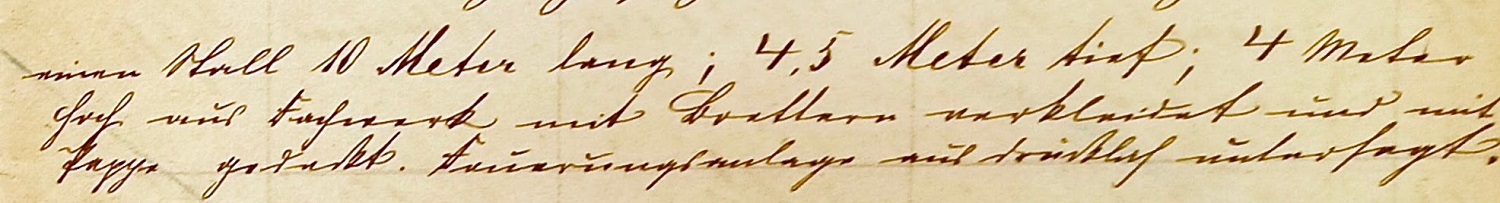 einen Stall 10 Meter lang; 4,5 Meter tief; 4 Meter
hoch aus Fachwerk mit Brettern verkleidet und mit
Pappe gedeckt. Feuerungsanlage ausdrücklich untersagt.